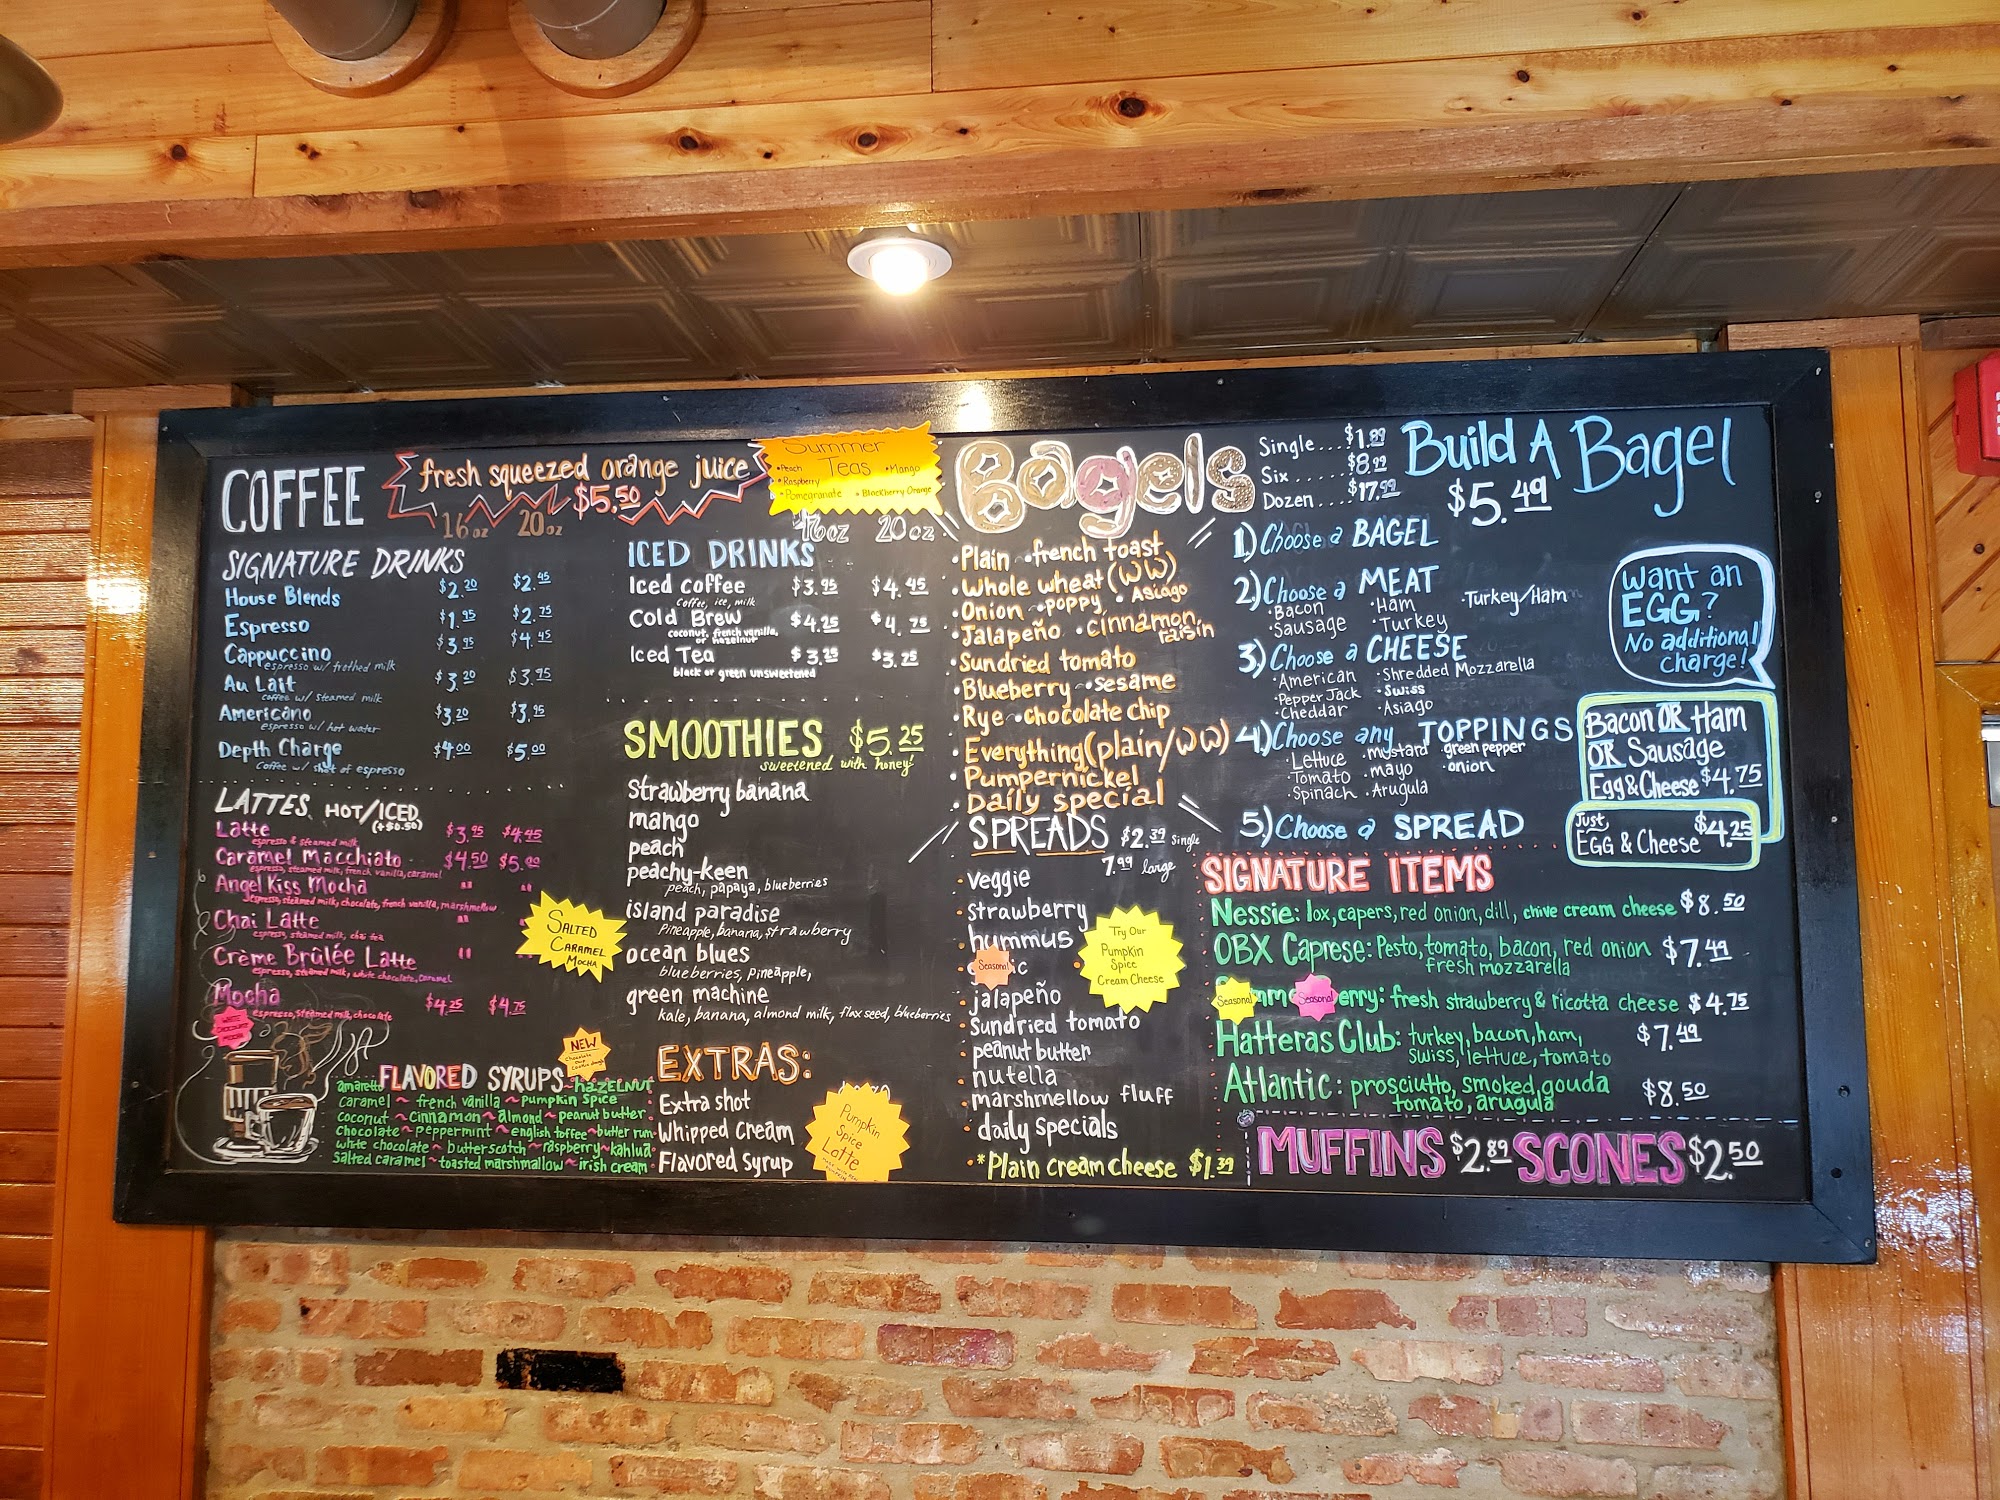 COFFEE
fresh squeezed orange juice
$5.50
16oz 20oz
SIGNATURE DRINKS
House Blends $2.20 $2.45
Espresso $1.95 $2.75
Cappuccino $3.95 $4.45
espresso w/ frothed milk
Au Lait $3.20 $3.75
coffee w/ steamed milk
Americano $3.20 $3.95
espresso w/ hot water
Depth Charge $4.00 $5.00
Coffee w/ shot of espresso
LATTES HOT/ICED
(+$0.50)
Latte $3.95 $4.45
espresso & steamed milk
Caramel Macchiato $4.50 $5.00
espresso, steamed milk, french vanilla, caramel
Angel Kiss Mocha " "
espresso, steamed milk, chocolate, french vanilla, marshmallow
Chai Latte " "
espresso, steamed milk, chai tea
Crème Brûlée Latte " "
espresso, steamed milk, white chocolate, caramel
Mocha $4.25 $4.75
espresso, steamed milk, chocolate
SALTED
CARAMEL
MOCHA
NEW
FLAVORED SYRUPS
amaretto hazelnut
caramel ~ french vanilla ~ pumpkin spice
coconut ~ cinnamon ~ almond ~ peanut butter
chocolate ~ peppermint ~ english toffee ~ butter rum
white chocolate ~ butterscotch ~ raspberry ~ kahlua
salted caramel ~ toasted marshmallow ~ irish cream
Summer
Teas
•Peach •Mango
•Raspberry
•Pomegranate •Blackberry Orange
16oz 20oz
ICED DRINKS
Iced coffee $3.95 $4.45
Coffee, ice, milk
Cold Brew $4.25 $4.75
coconut, french vanilla,
or hazelnut
Iced Tea $3.25 $3.25
black or green unsweetened
SMOOTHIES $5.25
sweetened with honey!
Strawberry banana
mango
peach
peachy-keen
peach, papaya, blueberries
island paradise
Pineapple, banana, strawberry
ocean blues
blueberries, pineapple,
green machine
kale, banana, almond milk, flax seed, blueberries
EXTRAS:
Extra shot
Whipped cream
Flavored syrup
Pumpkin
Spice
Latte
Bagels
Single...$1.89
Six.....$8.99
Dozen...$17.99
•Plain •french toast
•Whole wheat (WW)
•Onion •poppy •Asiago
•Jalapeño •cinnamon raisin
•Sundried tomato
•Blueberry •sesame
•Rye •chocolate chip
•Everything (plain/WW)
•Pumpernickel
•Daily special
SPREADS $2.39 single
7.99 large
•veggie
•strawberry
•hummus
Seasonal
•jalapeño
•sundried tomato
•peanut butter
•nutella
•marshmallow fluff
•daily specials
•*Plain cream cheese $1.39
Try Our
Pumpkin
Spice
Cream Cheese
Build A Bagel
$5.49
1.) Choose a BAGEL
2.) Choose a MEAT
•Bacon •Ham •Turkey/Ham
•Sausage •Turkey
3.) Choose a CHEESE
•American •Shredded Mozzarella
•Pepper Jack •Swiss
•Cheddar •Asiago
4.) Choose any TOPPINGS
•Lettuce •mustard •green pepper
•Tomato •mayo •onion
•Spinach •Arugula
5.) Choose a SPREAD
Want an
EGG?
No additional
charge!
Bacon OR Ham
OR Sausage
Egg & Cheese $4.75
Just
EGG & Cheese $4.25
SIGNATURE ITEMS
Nessie: lox, capers, red onion, dill, chive cream cheese $8.50
OBX Caprese: Pesto, tomato, bacon, red onion $7.49
fresh mozzarella
Seasonal Seasonal erry: fresh strawberry & ricotta cheese $4.75
Hatteras Club: turkey, bacon, ham, $7.49
swiss, lettuce, tomato
Atlantic: prosciutto, smoked gouda $8.50
tomato, arugula
MUFFINS $2.89 SCONES $2.50